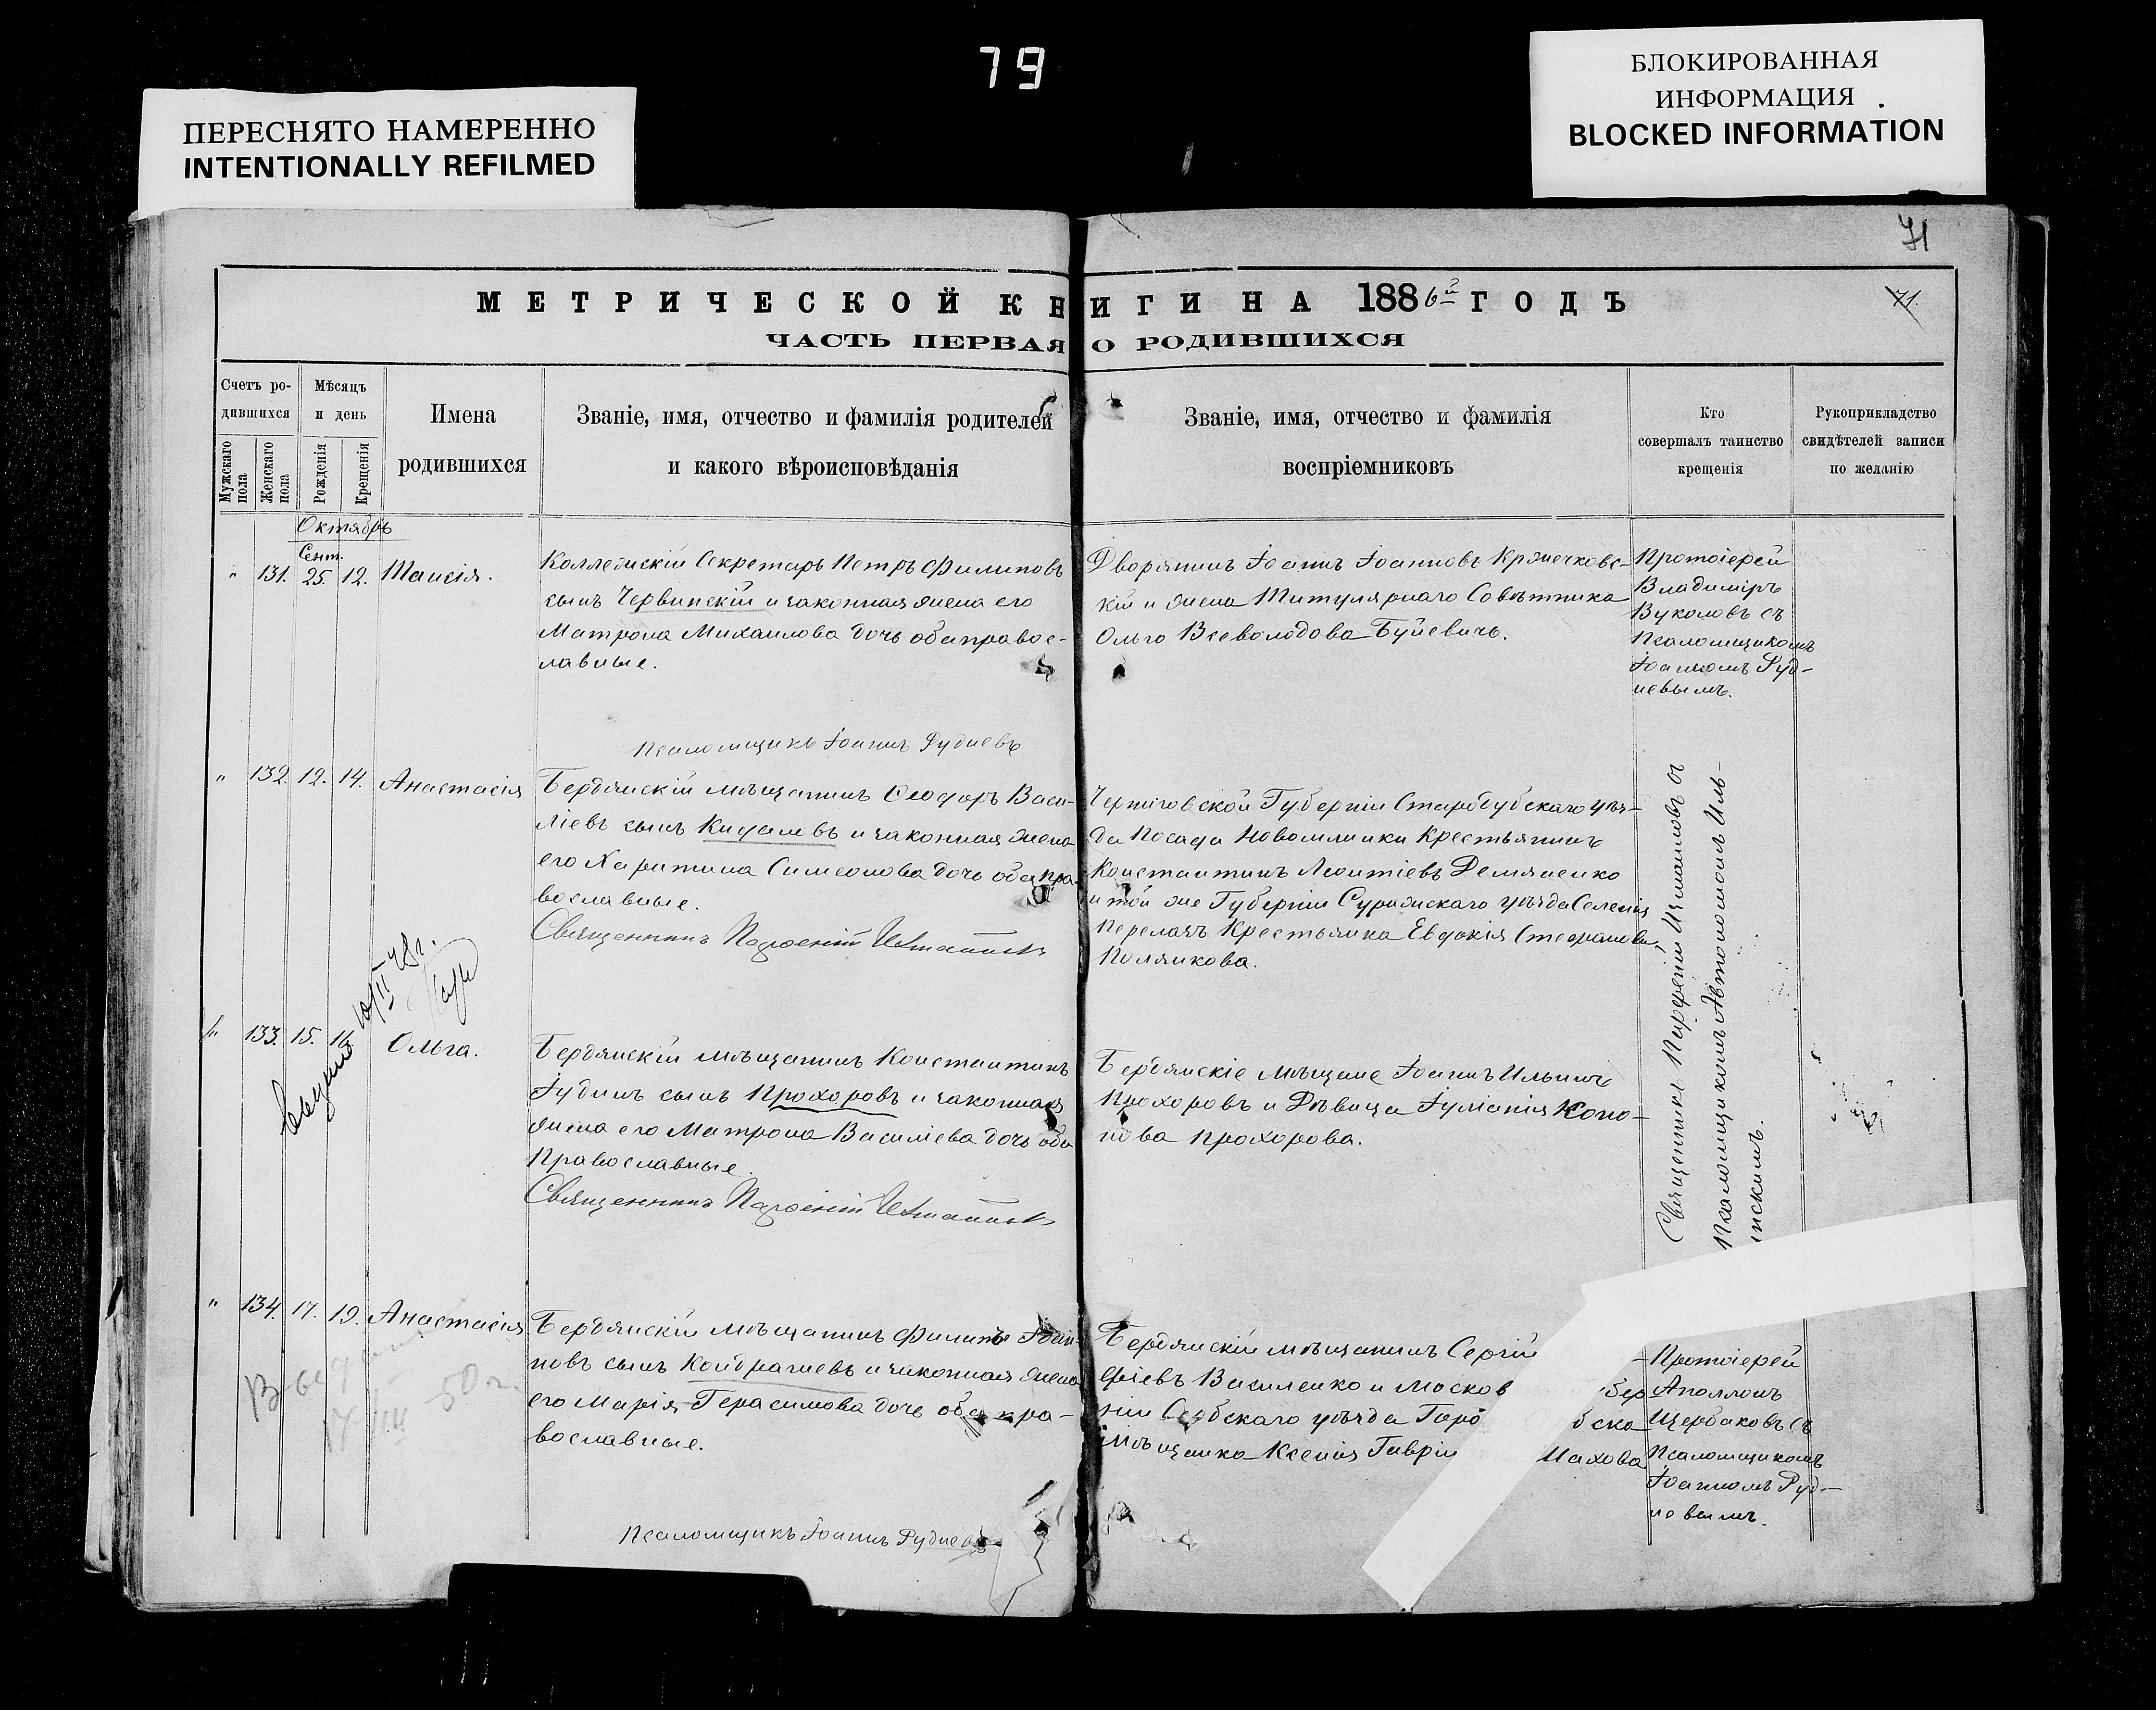 79
ПЕРЕСНЯТО НАМЕРЕННО
INTENTIONALLY REFILMED
БЛОКИРОВАННАЯ
ИНФОРМАЦИЯ
BLOCKED INFORMATION
71
МЕТРИЧЕСКОЙ КНИГИ НА 1886й ГОДЪ
71.
ЧАСТЬ ПЕРВАЯ О РОДИВШИХСЯ
Счетъ ро-
дившихся
Мужскаго пола
Женскаго пола
Мѣсяцъ
и день
Рожденія
Крещенія
Имена
родившихся
Званіе, имя, отчество и фамилія родителей
и какого вѣроисповѣданія
Званіе, имя, отчество и фамилія
воспріемниковъ
Кто
совершалъ таинство
крещенія
Рукоприкладство
свидѣтелей записи
по желанію
Октябрь
Сент.
" 131. 25 12. Таисія.
Коллежскій Секретарь Петръ Филиповъ
сынъ Червинскій и законная жена его
Матрона Михаилова дочь оба правос-
лавные.
Дворянинъ Іоаннъ Іоанновъ Кржечковс-
кій и жена Титулярнаго Совѣтника
Ольга Всеволодова Буйевичь.
Протоіерей
Владиміръ
Вуколовъ съ
Псаломщикомъ
Іоанномъ Руд-
невымъ.
Псаломщикъ Іоаннъ Рудневъ
" 132. 12. 14. Анастасія
Бердянскій мѣщанинъ Ѳеодоръ Васи-
ліевъ сынъ и законная жена
его Харитина Симеонова дочь оба пра-
вославные.
Священникъ Парѳеній
Черниговской Губерніи Стародубскаго уѣз-
да Посада Новомлинки Крестьянинъ
Константинъ Леонтіевъ Демяненко
и той же Губерніи Суражскаго уѣзда Селенія
Перелазъ Крестьянка Евдокія Стефанова
Полякова.
Священникъ Парѳеній съ
Псаломщикомъ Автономомъ Иль-
инскимъ.
10/II 48г.
" 133. 15. 16. Ольга.
Бердянскій мѣщанинъ Константинъ
Іудинъ сынъ Прохоровъ и законная
жена его Матрона Василіева дочь оба
Православные.
Священникъ Парѳеній
Бердянскіе мѣщане Іоаннъ Ильинъ
Прохоровъ и Дѣвица Іуліанія Коно-
нова Прохорова.
" 134. 17. 19. Анастасія
Бердянскій мѣщанинъ Филипъ Іоан-
новъ сынъ Кондрашевъ и законная жена
его Марія Герасимова дочь оба пра-
вославные.
50 г.
Бердянскій мѣщанинъ Сергій
фіевъ Василенко и Москов бер
ніи уѣзда Горо бска
Мѣщанка Ксенія Гавріи Махова
Протоіерей
Аполлонъ
Щербаковъ съ
Псаломщикомъ
Іоанномъ Руд-
невымъ.
Псаломщикъ Іоаннъ Рудневъ